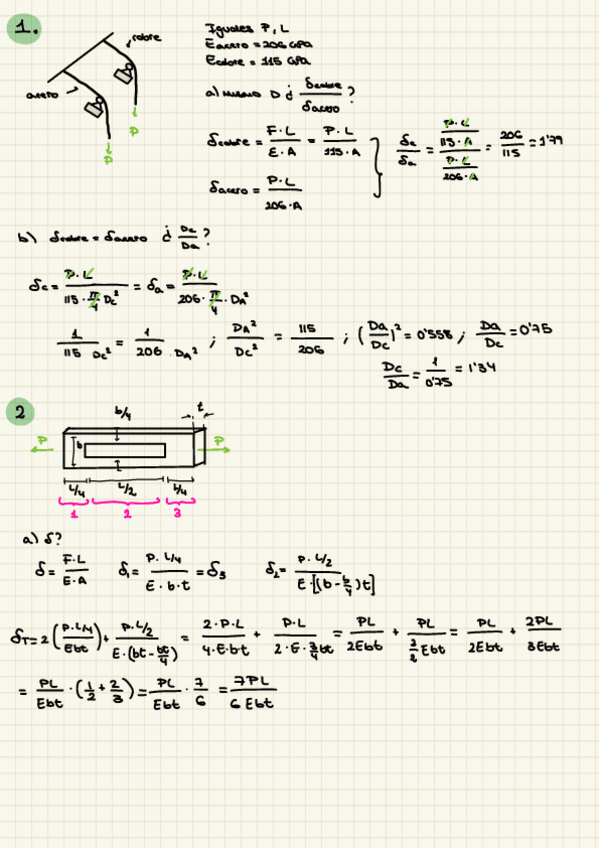 1.
cobre
acero
P
P
Iguales P, L
Eacero = 206 GPa
Ecobre = 115 GPa
a) mismo D ¿ δcobre/δacero ?
δcobre = F·L/E·A = P·L/115·A
δacero = P·L/206·A
δc/δa = (P·L/115·A)/(P·L/206·A) = 206/115 = 1'79
b) δcobre = δacero ¿ Dc/Da ?
δc = P·L/115·π/4 Dc² = δa = P·L/206·π/4·DA²
1/115 Dc² = 1/206 DA² ; DA²/Dc² = 115/206 ; (Da/Dc)² = 0'558 ; Da/Dc = 0'75
Dc/Da = 1/0'75 = 1'34
2
b/4
t
P
b
P
L/4
L/2
L/4
1
2
3
a) δ?
δ = F·L/E·A δ1 = P·L/4/E·b·t = δ3 δ2 = P·L/2/E·[(b-b/4)t]
δT = 2(P·L/4/Ebt) + P·L/2/E·(bt-bt/4) = 2·P·L/4·E·bt + P·L/2·E·3/4bt = PL/2Ebt + PL/3/2 Ebt = PL/2Ebt + 2PL/3Ebt
= PL/Ebt · (1/2 + 2/3) = PL/Ebt · 7/6 = 7PL/6Ebt